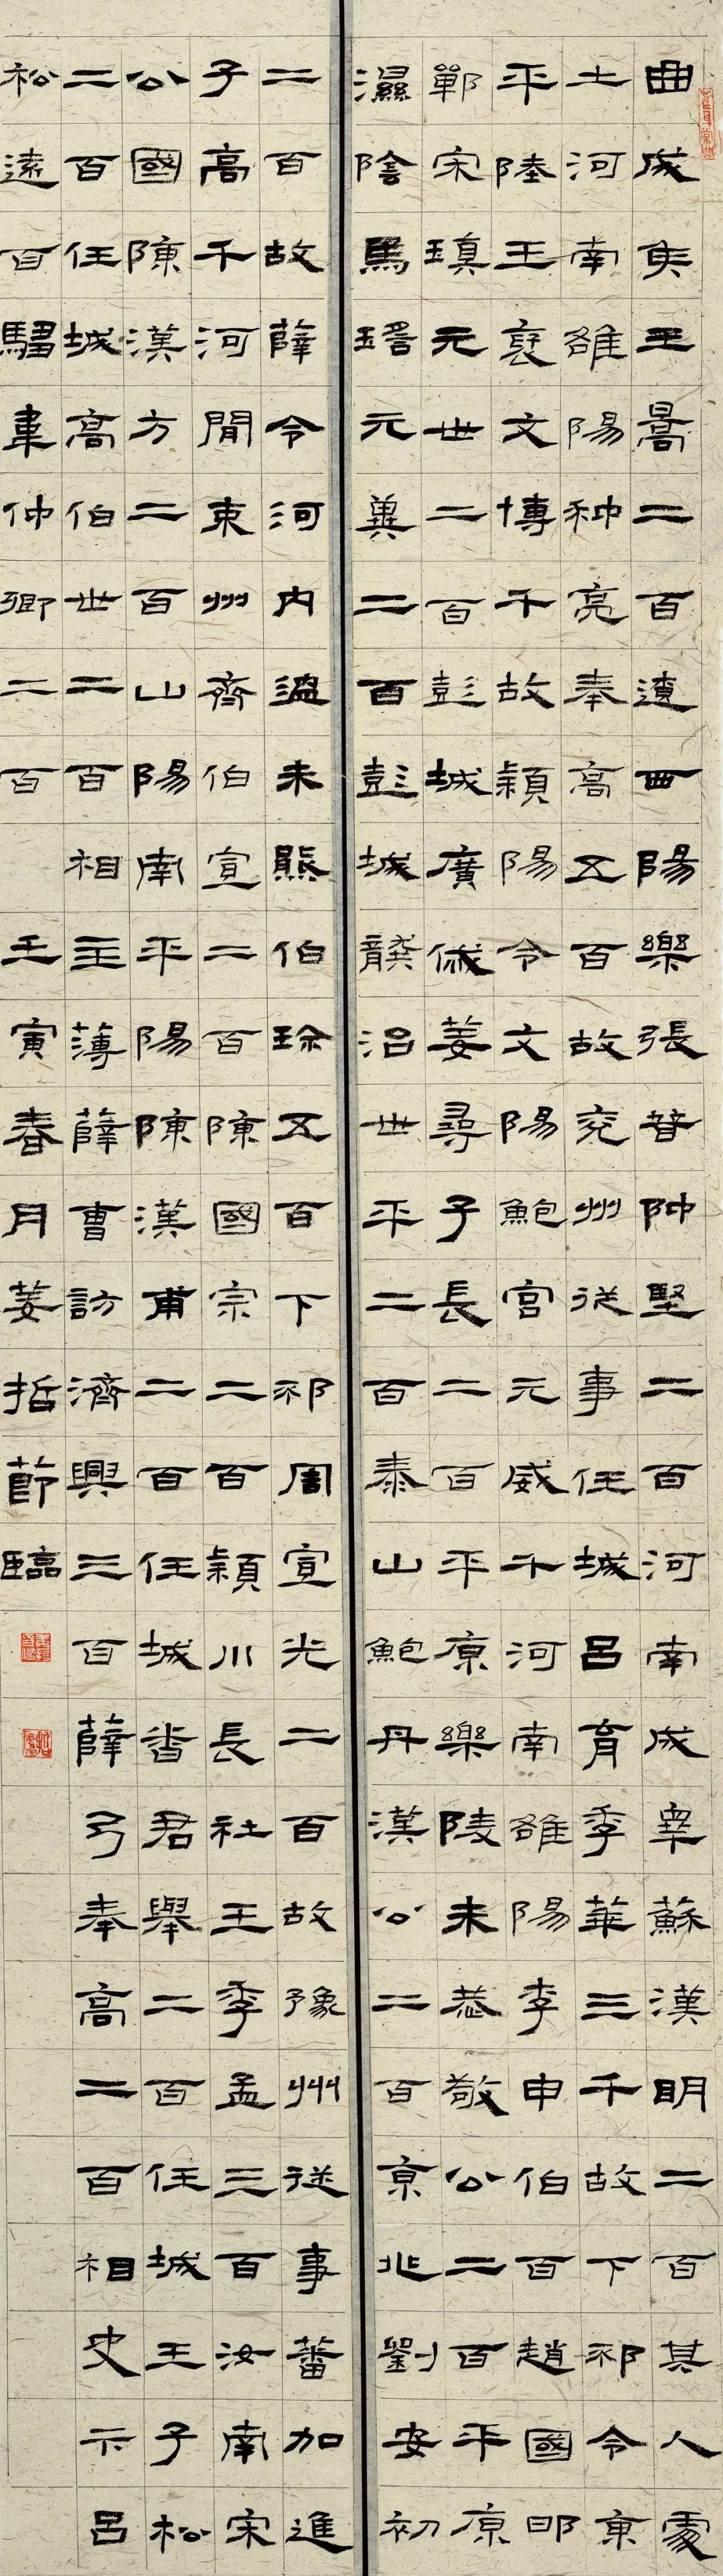 曲成侯王暠二百遼西陽樂張普仲堅二百河南成睪蘇漢明二百其人處
士河南雒陽种亮奉高五百故兗州從事任城呂育季華三千故下邳令東
平陸王褒文博千故潁陽令文陽鮑宮元威千河南雒陽李申伯百趙國邯
鄲宋瑱元世二百彭城廣戚姜尋子長二百平原樂陵朱恭敬公二百平原
濕陰馬瑤元冀二百彭城龔治世平二百泰山鮑丹漢公二百京兆劉安初
二百故薛令河內溫朱熊伯珍五百下邳周宣光二百故豫州從事蕃加進
子高千河閒束州齊伯宣二百陳國宗二百潁川長社王季孟三百汝南宋
公國陳漢方二百山陽南平陽陳漢甫二百任城番君舉二百任城王子松
二百任城高伯世二百相主薄薛曹訪濟興三百薛弓奉高二百相史卞呂
松遠百騶韋仲卿二百 壬寅春月姜哲節臨